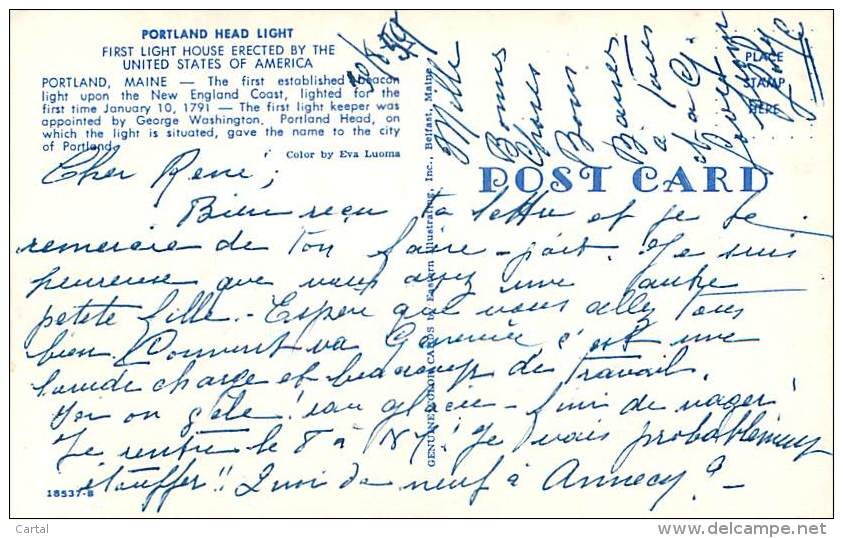 PORTLAND HEAD LIGHT
FIRST LIGHT HOUSE ERECTED BY THE
UNITED STATES OF AMERICA
PORTLAND, MAINE — The first established beacon
light upon the New England Coast, lighted for the
first time January 10, 1791 — The first light keeper was
appointed by George Washington. Portland Head, on
which the light is situated, gave the name to the city
of Portland.
Color by Eva Luoma
30/8/59
Cher Rene;
Bien reçu ta lettre et je te
remercie de ton faire-part. Je suis
heureuse que vous ayez une autre
petite fille. - Espère que vous allez tous
bien. Comment va c'est une
lourde charge et beaucoup de travail.
Ici on gèle! eau glacée - fini de nager!
Je rentre le 8 à N.Y.! Je vais probablement
étouffer!! Quoi de neuf à Annecy? -
18537-B
GENUINE NATURAL COLOR CARDS BY Eastern Illustrating, Inc., Belfast, Maine
POST CARD
PLACE
STAMP
HERE
Mille
Bonnes
Choses
Bons
Baisers
à tous
et à
Cartal
delcampe.net